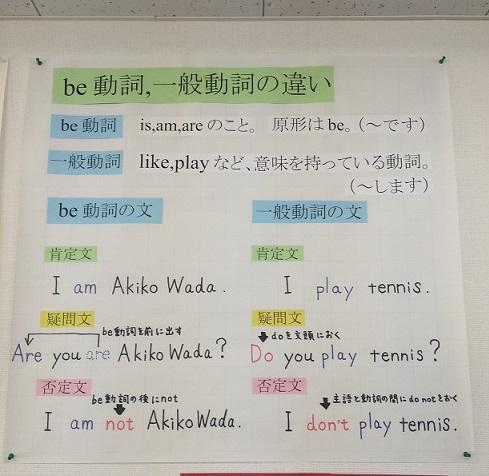 be 動詞,一般動詞の違い
be 動詞 is,am,are のこと。 原形は be。(〜です)
一般動詞 like,play など、意味を持っている動詞。
(〜します)
be 動詞の文
肯定文
I am Akiko Wada.
疑問文
be動詞を前に出す
Are you are Akiko Wada?
否定文
be動詞の後にnot
I am not Akiko Wada.
一般動詞の文
肯定文
I play tennis.
疑問文
doを文頭におく
Do you play tennis?
否定文
主語と動詞の間にdo notをおく
I don't play tennis.